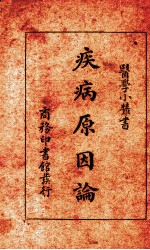 醫學小叢書
疾病原因論
商務印書館發行